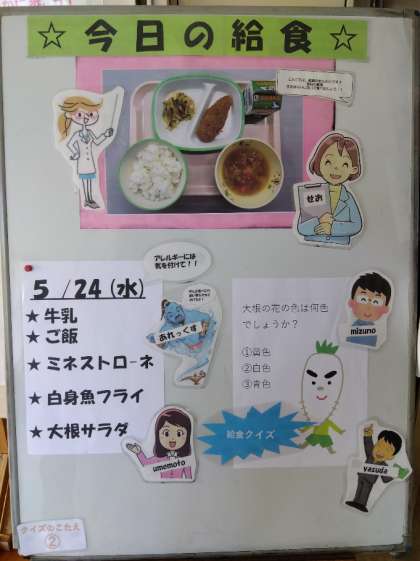 ☆今日の給食☆
せお
アレルギーには
気を付けて！！
あれっくす
5/24(水)
★牛乳
★ご飯
★ミネストローネ
★白身魚フライ
★大根サラダ
大根の花の色は何色
でしょうか？
①黄色
②白色
③青色
mizuno
給食クイズ
umemoto
yasuda
クイズのこたえ
②